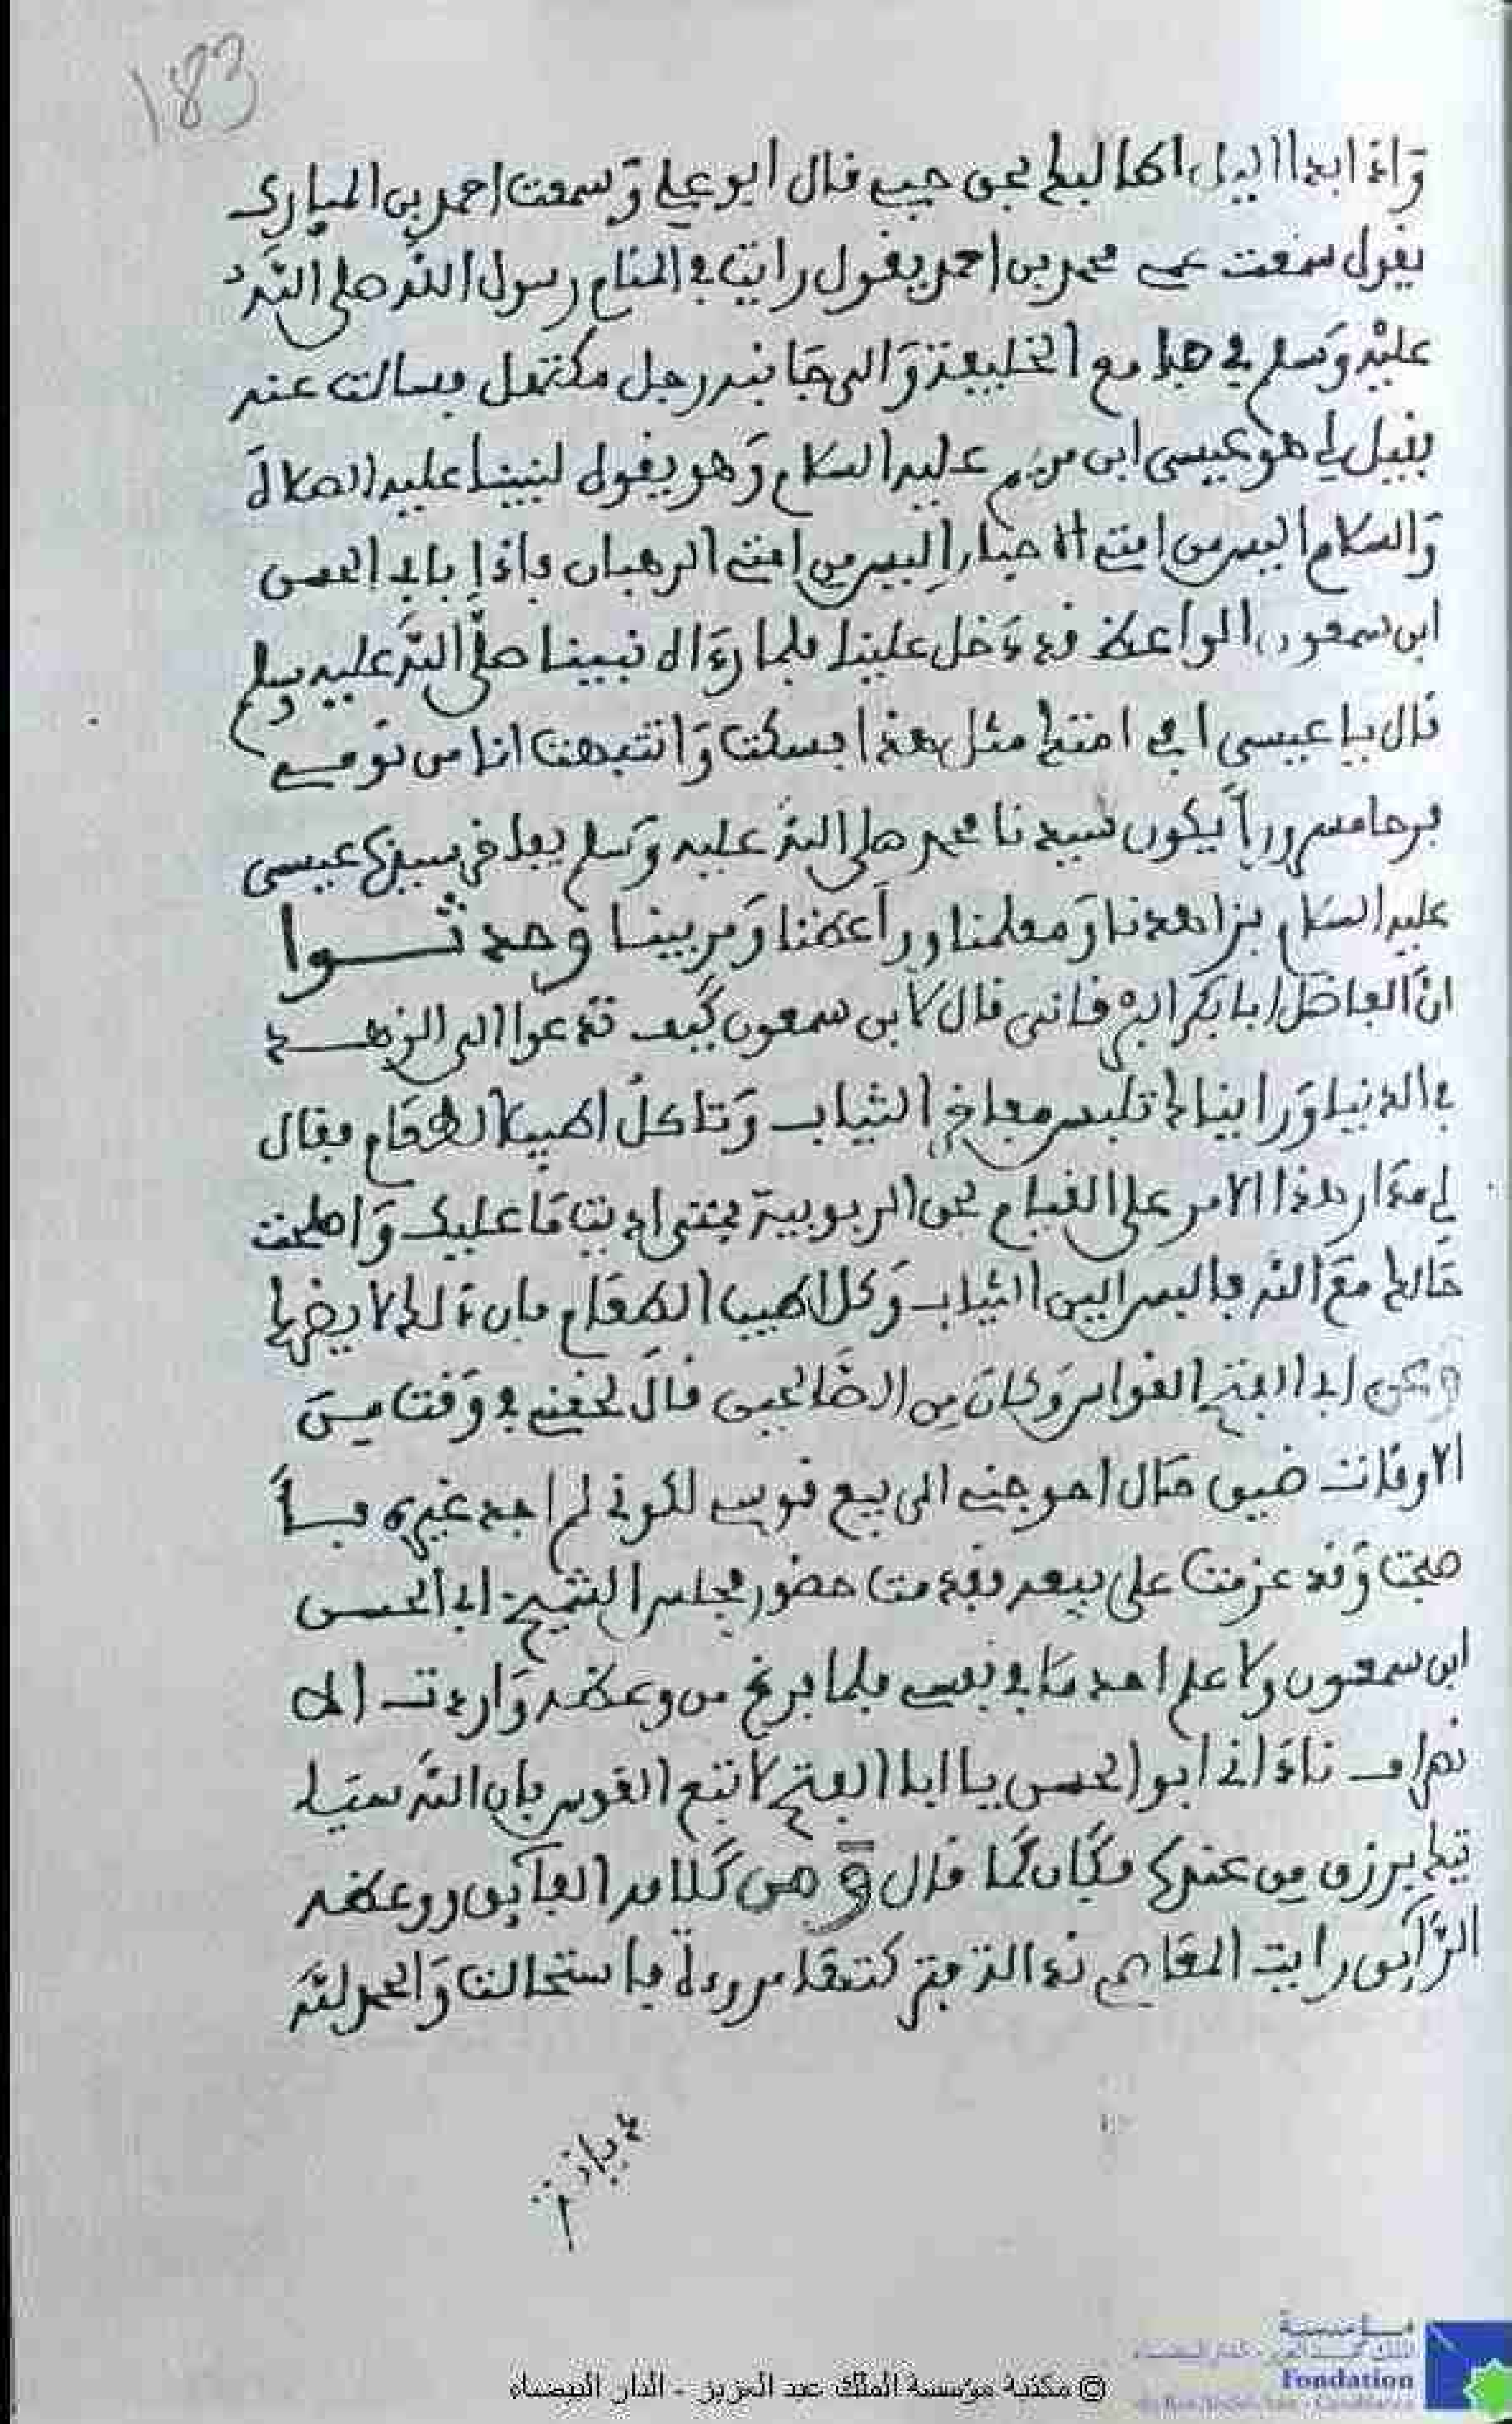 183
وَاذا ابدا اليل اكاليله يجى حبيب قال ابو علي وَسمعت احمد بن المبارك
يقول سمعت عمي محمد بن احمد يقول رايت في المنام رسول الله صلى الله
عليه وَسلم في جامع الخليفة وَالى جَانبه رجل مكتهل فسالت عنه
فقيل لي هو عيسى ابن مريم عليه السلام وَهو يقول لنبينا عليه الصلاة
وَالسلام اليس من امتي الاحبار اليس من امتي الرهبان فاذا بابي الحسن
ابن سمعون الواعظ قد دَخل علينا فلما رءَاه نبينا صلى الله عليه وسلم
قال يا عيسى افي امتك مثل هذا فسكت وَانتبهت انا من نومي
فرحا مسرورا بكون سيدنا محمد صلى الله عليه وَسلم يفاخر سيدي عيسى
عليه السلام بزاهدنا وَمعلمنا وواعظنا وَمربينا وحدثـــوا
ان الفاضل ابا بكر البرقاني قال لابن سمعون كيف تدعوا الى الزهـــد
في الدنيا وَرايناك تلبس مفاخر الثياب وَتاكل اطيب الطعَام فقال
لي مدَار هذا الامر على القيام بحق الربوبية فمتى اديت مَا عليك وَاصلحت
حَالك معَ الله فالبس الين الثياب وَكل اطيب الطعَام فان ذلك لا يضرك
وعن ابي الفتح القواس وَكانَ من الصَالحين قالَ لحقني في وَقت مـنَ
الاوقات ضيق حَال احوجني الى بيع قوسي لكوني لم اجد غيره فـــاَ
صبحت وَقد عزمت على بيعه فقدمت حضور مجلس الشيخ ابي الحسن
ابن سمعون ولا علم احد مَا في نفسي فلما فرغ من وعظه وَاردت الا
نصراف نادَاني ابو الحسن يا ابا الفتح لا تبع القوس فان الله سيَا
تيك برزق من عنده فكان كما قال وَمن كلامه الفائق ووعظه
الرَّائق رايت المعَاصي نذالة فتركتها مروءة فاستحالت وَالحمد لله
ديانة
© مكتبة مؤسسة الملك عبد العزيز - الدار البيضاء
Fondation